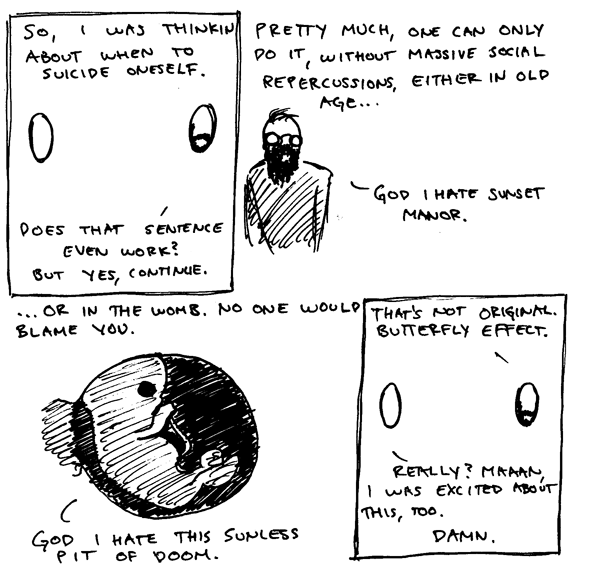 SO, I WAS THINKIN
ABOUT WHEN TO
SUICIDE ONESELF.
DOES THAT SENTENCE
EVEN WORK?
BUT YES, CONTINUE.
PRETTY MUCH, ONE CAN ONLY
DO IT, WITHOUT MASSIVE SOCIAL
REPERCUSSIONS, EITHER IN OLD
AGE...
GOD I HATE SUNSET
MANOR.
...OR IN THE WOMB. NO ONE WOULD
BLAME YOU.
GOD I HATE THIS SUNLESS
PIT OF DOOM.
THAT'S NOT ORIGINAL.
BUTTERFLY EFFECT.
REALLY? MAAAN,
I WAS EXCITED ABOUT
THIS, TOO.
DAMN.